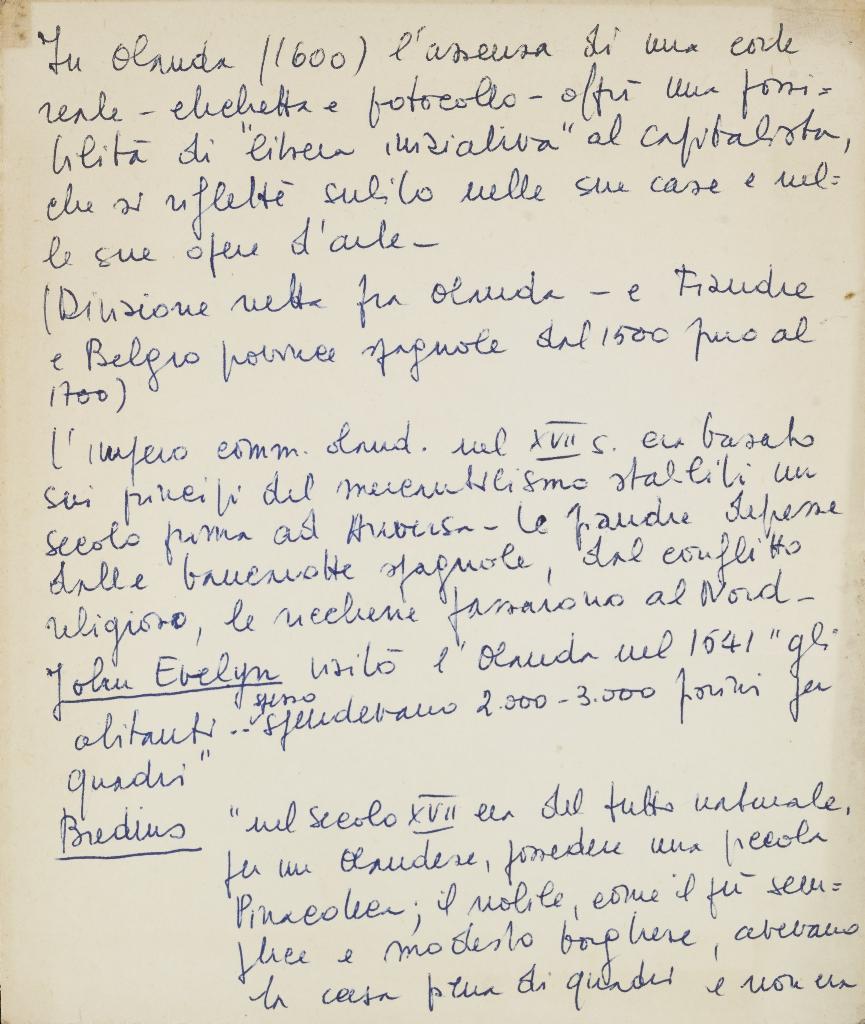 In Olanda (1600) l'assenza di una corte
reale - etichetta e protocollo - offrì una possi=
bilità di "libera iniziativa" al capitalista,
che si riflettè subito nelle sue case e nel=
le sue opere d'arte -
(Divisione netta fra Olanda - e Fiandre
e Belgio province spagnole dal 1500 fino al
1700)
L'impero comm. oland. nel XVII s. era basato
sui principi del mercantilismo stabiliti un
secolo prima ad Anversa - Le fiandre depresse
dalle bancarotte spagnole, dal conflitto
religioso, le ricchezze passarono al Nord -
John Evelyn visitò l'Olanda nel 1641 "gli
abitanti .. spesso spendevano 2.000 - 3.000 fiorini per
quadri"
Bredius "nel secolo XVII era del tutto naturale,
per un Olandese, possedere una piccola
Pinacoteca; il nobile, come il più sem=
plice e modesto borghese, avevano
la casa piena di quadri e non era